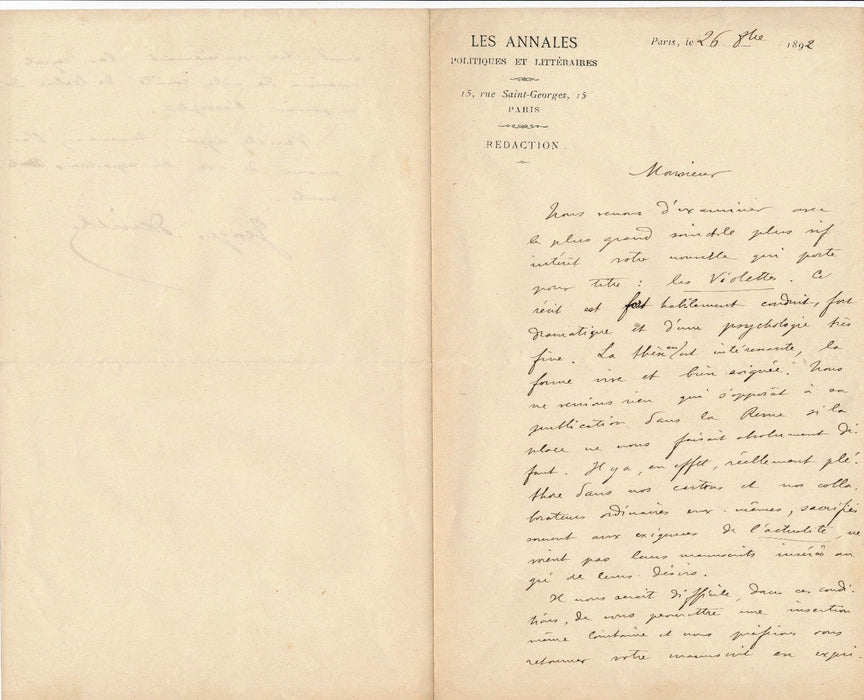 LES ANNALES
POLITIQUES ET LITTÉRAIRES
15, rue Saint-Georges, 15
PARIS
RÉDACTION
Paris, le 26 8bre 1892
Monsieur
Nous venons d'examiner avec
le plus grand soin et le plus vif
intérêt votre nouvelle qui porte
pour titre : les Violettes. Ce
récit est fort habilement conduit, fort
dramatique et d'une psychologie très
fine. La thèse en est intéressante, la
forme vive et bien soignée. Nous
ne verrions rien qui s'opposât à sa
publication dans la Revue si la
place ne nous faisait absolument dé-
faut. Il y a, en effet, réellement plé-
thore dans nos cartons et nos colla-
borateurs ordinaires eux-mêmes, sacrifiés
souvent aux exigences de l'actualité, ne
voient pas leurs manuscrits insérés au
gré de leurs désirs.
Il nous serait difficile, dans ces condi-
tions, de vous promettre une insertion
même lointaine et nous préférons vous
retourner votre manuscrit en expri-